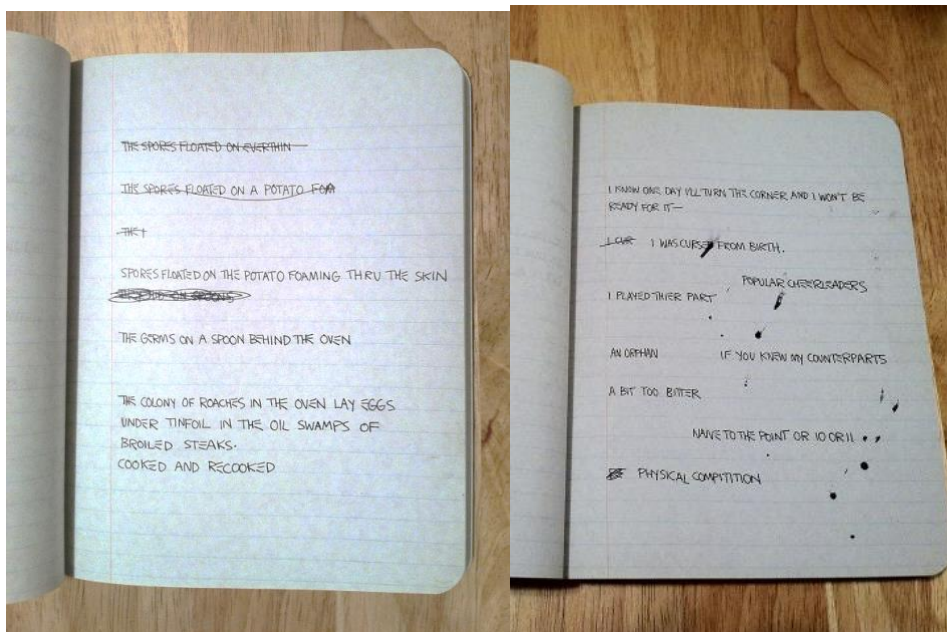 THE SPORES FLOATED ON EVERTHIN
THE SPORES FLOATED ON A POTATO FOM
THE
SPORES FLOATED ON THE POTATO FOAMING THRU THE SKIN
ON SPOONS
THE GERMS ON A SPOON BEHIND THE OVEN
THE COLONY OF ROACHES IN THE OVEN LAY EGGS
UNDER TINFOIL IN THE OIL SWAMPS OF
BROILED STEAKS.
COOKED AND RECOOKED
I KNOW ONE DAY I'LL TURN THE CORNER AND I WON'T BE
READY FOR IT—
I CUR I WAS CURSE FROM BIRTH.
POPULAR CHEERLEADERS
I PLAYED THIER PART
AN ORPHAN IF YOU KNEW MY COUNTERPARTS
A BIT TOO BITTER
NAIVE TO THE POINT OR 10 OR 11
PHYSICAL COMPITITION